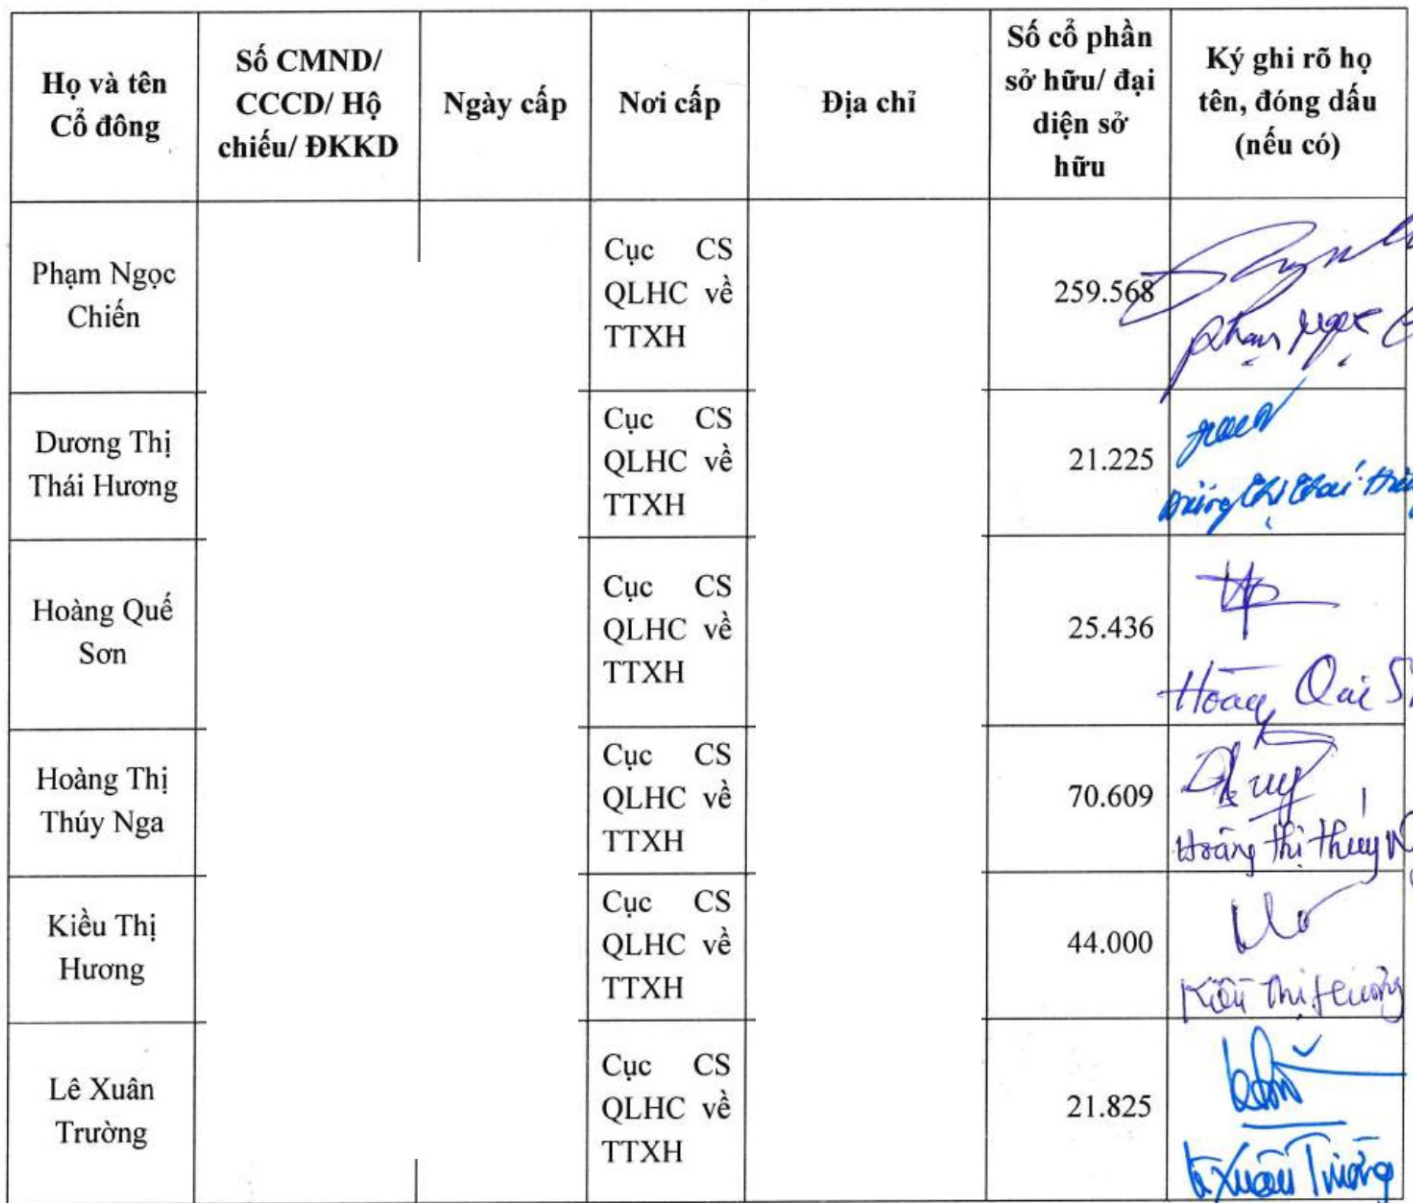 Họ và tên
Cổ đông
Số CMND/
CCCD/ Hộ
chiếu/ ĐKKD
Ngày cấp
Nơi cấp
Địa chỉ
Số cổ phần
sở hữu/ đại
diện sở
hữu
Ký ghi rõ họ
tên, đóng dấu
(nếu có)
Phạm Ngọc
Chiến
Cục CS
QLHC về
TTXH
259.568
Phạm Ngọc
Dương Thị
Thái Hương
Cục CS
QLHC về
TTXH
21.225
Dương Thị Thái
Hoàng Quế
Sơn
Cục CS
QLHC về
TTXH
25.436
Hoàng Quế
Hoàng Thị
Thúy Nga
Cục CS
QLHC về
TTXH
70.609
Hoàng Thị Thúy
Kiều Thị
Hương
Cục CS
QLHC về
TTXH
44.000
Kiều Thị Hương
Lê Xuân
Trường
Cục CS
QLHC về
TTXH
21.825
Lê Xuân Trường